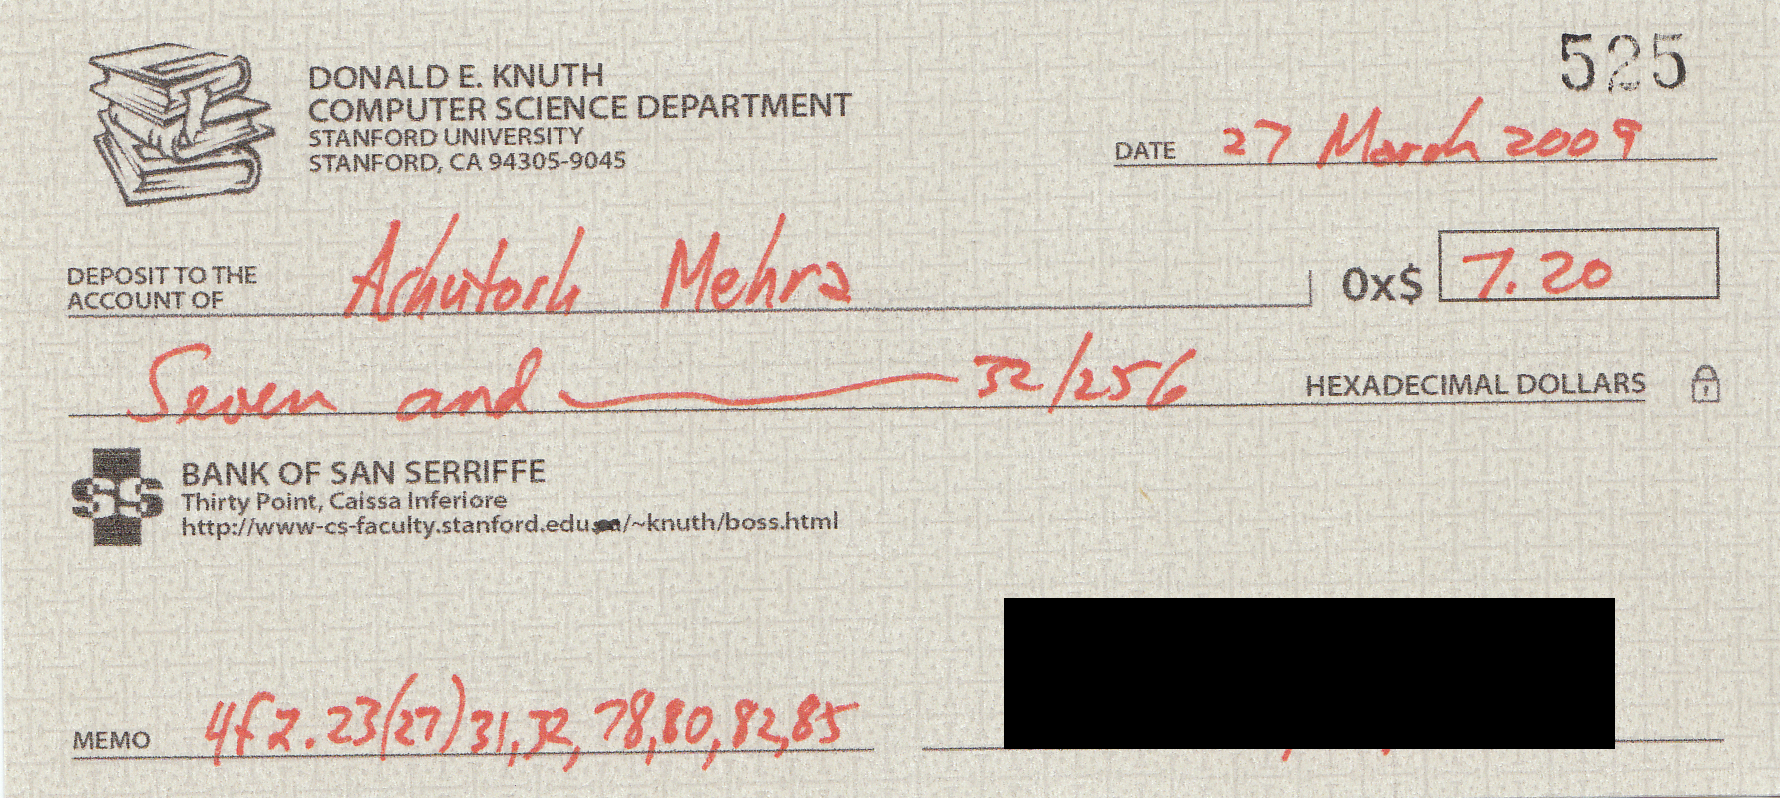 525
DONALD E. KNUTH
COMPUTER SCIENCE DEPARTMENT
STANFORD UNIVERSITY
STANFORD, CA 94305-9045
DATE 27 March 2009
DEPOSIT TO THE
ACCOUNT OF Ashutosh Mehra 0x$ 7.20
Seven and 32/256 HEXADECIMAL DOLLARS
SS
BANK OF SAN SERRIFFE
Thirty Point, Caissa Inferiore
http://www-cs-faculty.stanford.edu/~knuth/boss.html
MEMO 4f2.23(27)31,32,78,80,82,85